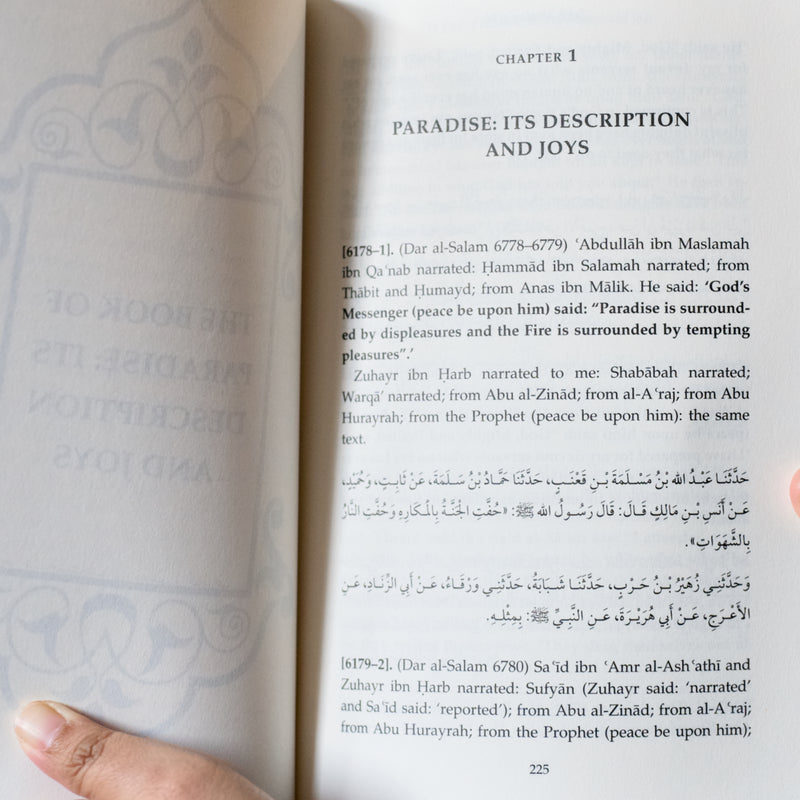 THE BOOK OF
PARADISE: ITS
DESCRIPTION
AND JOYS
CHAPTER 1
PARADISE: ITS DESCRIPTION
AND JOYS
[6178–1]. (Dar al-Salam 6778–6779) ʿAbdullāh ibn Maslamah
ibn Qaʿnab narrated: Ḥammād ibn Salamah narrated; from
Thābit and Ḥumayd; from Anas ibn Mālik. He said: ‘God’s
Messenger (peace be upon him) said: “Paradise is surround-
ed by displeasures and the Fire is surrounded by tempting
pleasures”.’
Zuhayr ibn Ḥarb narrated to me: Shabābah narrated;
Warqāʾ narrated; from Abu al-Zinād; from al-Aʿraj; from Abu
Hurayrah; from the Prophet (peace be upon him): the same
text.
حَدَّثَنَا عَبْدُ الله بْنُ مَسْلَمَةَ بْنِ قَعْنَبٍ، حَدَّثَنَا حَمَّادُ بْنُ سَلَمَةَ، عَنْ ثَابِتٍ، وَحُمَيْدٍ،
عَنْ أَنَسِ بْنِ مَالِكٍ قَالَ: قَالَ رَسُولُ الله ﷺ: «حُفَّتِ الْجَنَّةُ بِالْمَكَارِهِ وَحُفَّتِ النَّارُ
بِالشَّهَوَاتِ».
وَحَدَّثَنِي زُهَيْرُ بْنُ حَرْبٍ، حَدَّثَنَا شَبَابَةُ، حَدَّثَنِي وَرْقَاءُ، عَنْ أَبِي الزِّنَادِ، عَنِ
الأَعْرَجِ، عَنْ أَبِي هُرَيْرَةَ، عَنِ النَّبِيِّ ﷺ: بِمِثْلِهِ.
[6179–2]. (Dar al-Salam 6780) Saʿīd ibn ʿAmr al-Ashʿathī and
Zuhayr ibn Ḥarb narrated: Sufyān (Zuhayr said: ‘narrated’
and Saʿīd said: ‘reported’); from Abu al-Zinād; from al-Aʿraj;
from Abu Hurayrah; from the Prophet (peace be upon him);
225